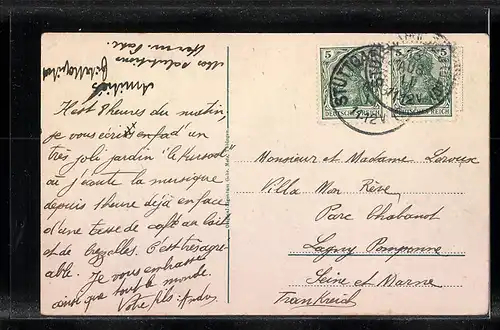 Il est 8 heures du matin,
je vous écris en fad d'un
très joli jardin "le Kursaal"
où j'écoute la musique
depuis 1 heure déjà en face
d'une tasse de café au lait
et de brezelles. C'est très agré-
able. Je vous embrasse
ainsi que tout le monde.
Votre fils: André
Mes salutations
Amitiés
5
5
DEUTSCHES REICH
DEUTSCHES REICH
STUTTGART
Monsieur et Madame Laroux
Villa Mon Rêve
Parc Chabanot
Lagny Pomponne
Seine et Marne
Frankreich